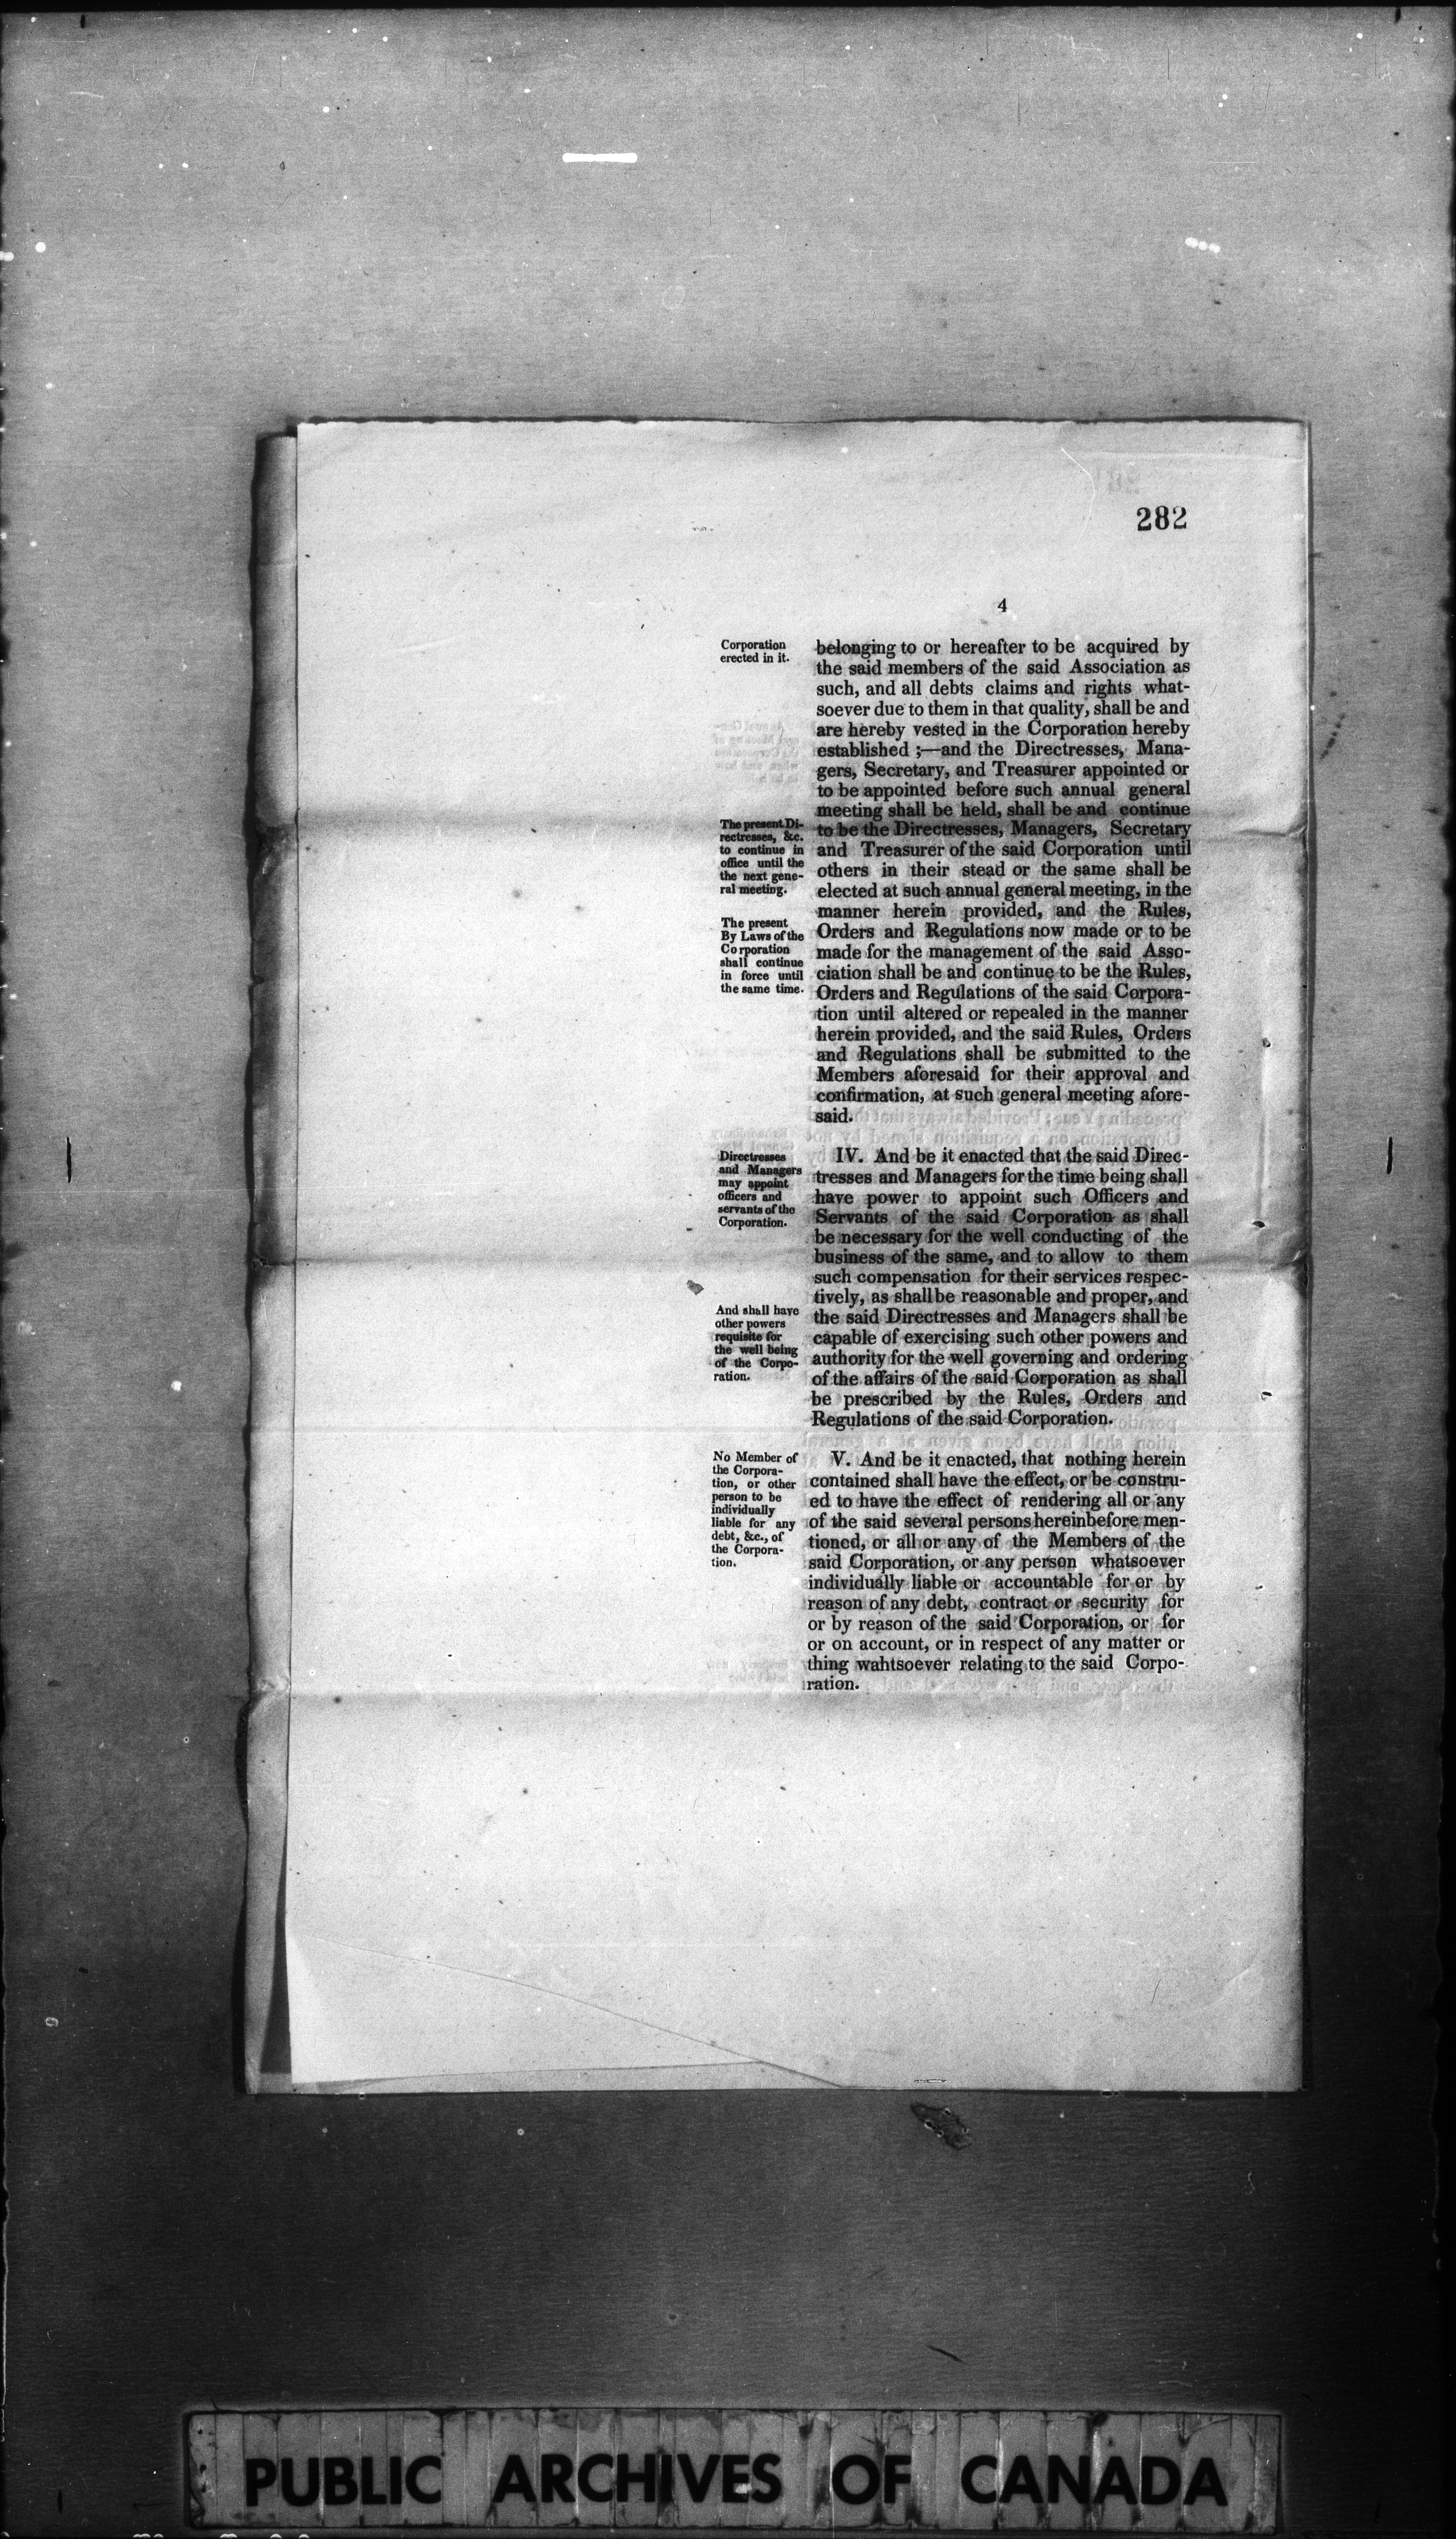 282
4
Corporation
erected in it.
belonging to or hereafter to be acquired by
the said members of the said Association as
such, and all debts claims and rights what-
soever due to them in that quality, shall be and
are hereby vested in the Corporation hereby
established ;—and the Directresses, Mana-
gers, Secretary, and Treasurer appointed or
to be appointed before such annual general
meeting shall be held, shall be and continue
to be the Directresses, Managers, Secretary
and Treasurer of the said Corporation until
others in their stead or the same shall be
elected at such annual general meeting, in the
manner herein provided, and the Rules,
Orders and Regulations now made or to be
made for the management of the said Asso-
ciation shall be and continue to be the Rules,
Orders and Regulations of the said Corpora-
tion until altered or repealed in the manner
herein provided, and the said Rules, Orders
and Regulations shall be submitted to the
Members aforesaid for their approval and
confirmation, at such general meeting afore-
said.
The present Di-
rectresses, &c.
to continue in
office until the
the next gene-
ral meeting.
The present
By Laws of the
Corporation
shall continue
in force until
the same time.
Directresses
and Managers
may appoint
officers and
servants of the
Corporation.
IV. And be it enacted that the said Direc-
tresses and Managers for the time being shall
have power to appoint such Officers and
Servants of the said Corporation as shall
be necessary for the well conducting of the
business of the same, and to allow to them
such compensation for their services respec-
tively, as shall be reasonable and proper, and
the said Directresses and Managers shall be
capable of exercising such other powers and
authority for the well governing and ordering
of the affairs of the said Corporation as shall
be prescribed by the Rules, Orders and
Regulations of the said Corporation.
And shall have
other powers
requisite for
the well being
of the Corpo-
ration.
No Member of
the Corpora-
tion, or other
person to be
individually
liable for any
debt, &c., of
the Corpora-
tion.
V. And be it enacted, that nothing herein
contained shall have the effect, or be constru-
ed to have the effect of rendering all or any
of the said several persons hereinbefore men-
tioned, or all or any of the Members of the
said Corporation, or any person whatsoever
individually liable or accountable for or by
reason of any debt, contract or security for
or by reason of the said Corporation, or for
or on account, or in respect of any matter or
thing wahtsoever relating to the said Corpo-
ration.
PUBLIC ARCHIVES OF CANADA